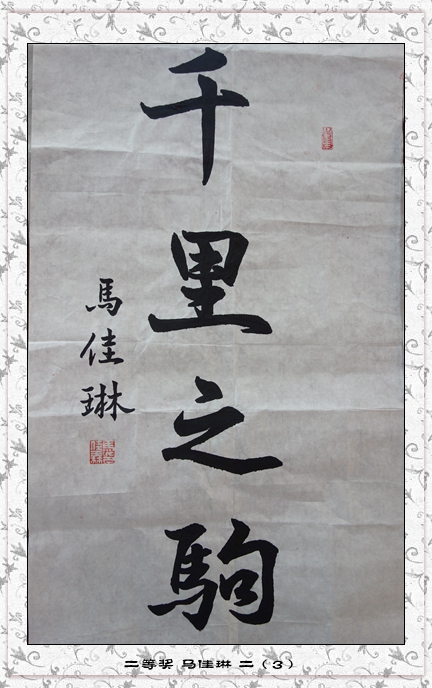 千里之駒
馬佳琳
二等奖 马佳琳 二（3）